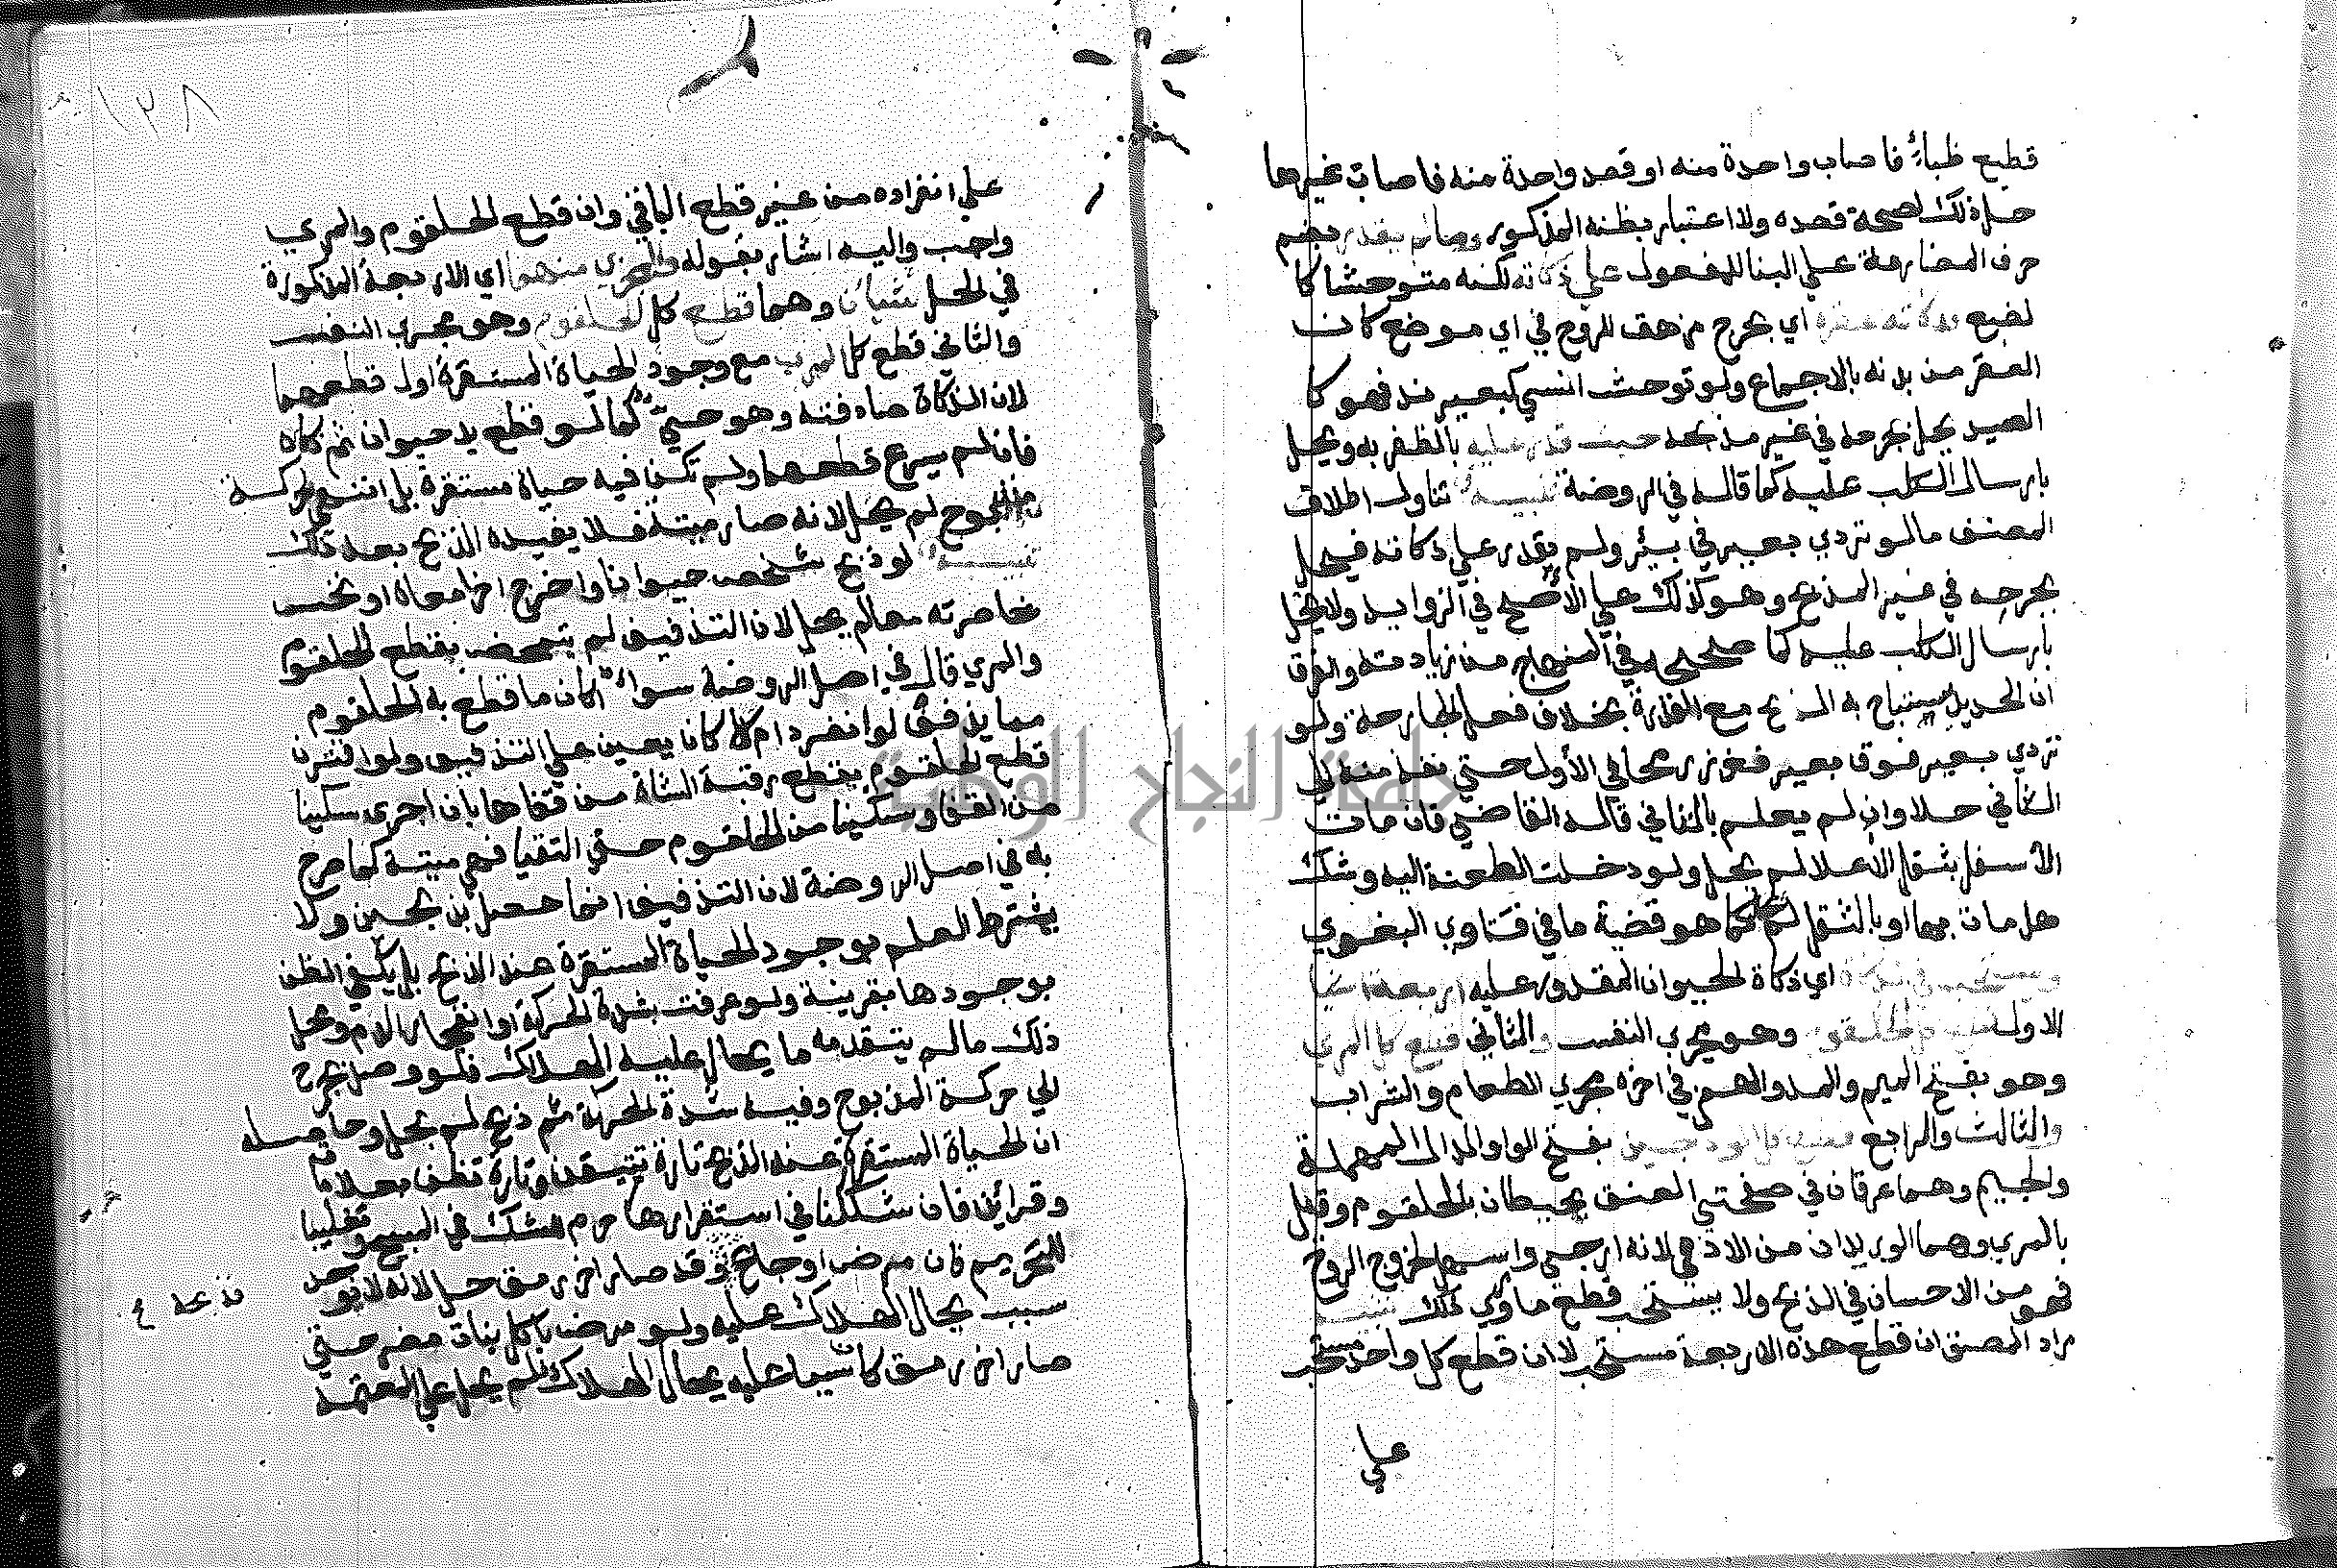 قطيع ظباء فاصاب واحدة منه او قصد واحدة منه فاصاب غيرها
حل ذلك لصحة قصده ولا اعتبار بظنه المذكور وما لم يقدر بضم
حرف المضارعة علي البنا للمفعول علي ذكاته لكنه متوحشا كا
لضبع فذكاته عقره اي بجرح مزهق للروح في اي موضع كان
العقر من بدنه بالاجماع ولو توحش انسي كبعير ند فهو كا
لصيد يحل بجرحه في غير مذبحه حيث قدر عليه بالظفر به ويحل
بارسال الكلب عليه كما قاله في الروضة تنبيه تناول اطلاق
المصنف ما لو تردي بعير في بير ولم يقدر علي ذكاته فيحل
بجرحه في غير المذبح وهو كذلك علي الأصح في الزوايد ولا يحل
بارسال الكلب عليه كما صححه في المنهاج من زيادته والفرق
ان الحديد يستباح به الذبح مع القدرة بخلاف فعل الجارحة ولو
تردي بعير فوق بعير فغرز رمحا في الأول حتي نفذ منه الي
الثاني حلا وان لم يعلم بالثاني قاله القاضي فان مات
الأسفل بثقل الأعلا لم يحل ولو دخلت الطعنة اليه وشك
هل مات بها او بالثقل كما هو قضية ما في فتاوي البغوي
ويستحب في الذكاة اي ذكاة الحيوان المقدور عليه اربعة اشيا
الاول قطع الحلقوم وهو مجري النفس والثاني قطع كل المري
وهو بفتح الميم والمد والهمز في اخره مجري الطعام والشراب
والثالث والرابع قطع كل الودجين بفتح الواو والدال المهملة
والجيم وهما عرقان في صفحتي العنق يحيطان بالحلقوم وقيل
بالمري وهما الوريدان من الادمي لانه ارجي واسهل لخروج الروح
فهو من الاحسان في الذبح ولا يستحب قطع ما وري ذلك تنبيه
مراد المصنف ان قطع هذه الاربعة مستحب لا ان قطع كل واحد مستحب
علي
١٣٨
علي انفراده من غير قطع الباقي وان قطع الحلقوم والمري
واجب واليه اشار بقوله والمجزي منهما اي الاربعة المذكورة
في الحل شيئان وهما قطع كل الحلقوم وهو مجري النفس
والثاني قطع كل المري مع وجود الحياة المستقرة اول قطعهما
لان الذكاة صادفته وهو حي كما لو قطع يد حيوان ثم ذكاه
فان لم يسرع قطعهما ولم تكن فيه حياة مستقرة بل انتهي لحركة
مذبوح لم يحل لانه صار ميتة فلا يفيده الذبح بعد ذلك
تنبيه لو ذبح شخص حيوانا واخرج اخر امعاه او نخس
خاصرته معا لم يحل لان التذفيف لم يتمحض بقطع الحلقوم
والمري قال في اصل الروضة سواء اكان ما قطع به الحلقوم
مما يذفف لو انفرد ام كان يعين علي التذفيف ولو اقترن
قطع الحلقوم بقطع رقبة الشاة من قفاها بان اجري سكينا
من القفا وسكينا من الحلقوم حتي التقيا فهي ميتة كما صرح
به في اصل الروضة لان التذفيف انما حصل بذبحين ولا
يشترط العلم بوجود الحياة المستقرة عند الذبح بل يكفي الظن
بوجودها بقرينة ولو عرفت بشدة الحركة او انفجار الدم ومحل
ذلك ما لم يتقدمه ما يحال عليه الهلاك فلو وصل بجرح
الي حركة المذبوح وفيه شدة الحركة ثم ذبح لم يحل وحاصله
ان الحياة المستقرة عند الذبح تارة تتيقن وتارة تظن بعلامات
وقراين فان شككنا في استقرارها حرم للشك في المبيح وتغليبا
للتحريم فان مرض او جاع فذبحه وقد صار اخر رمق حل لانه لا يوجد
سبب يحال الهلاك عليه ولو مرض باكل نبات مضر حتي
صار اخر رمق كان سببا عليه يحال الهلاك فلم يحل علي المعتمد
جامعة النجاح الوطنية